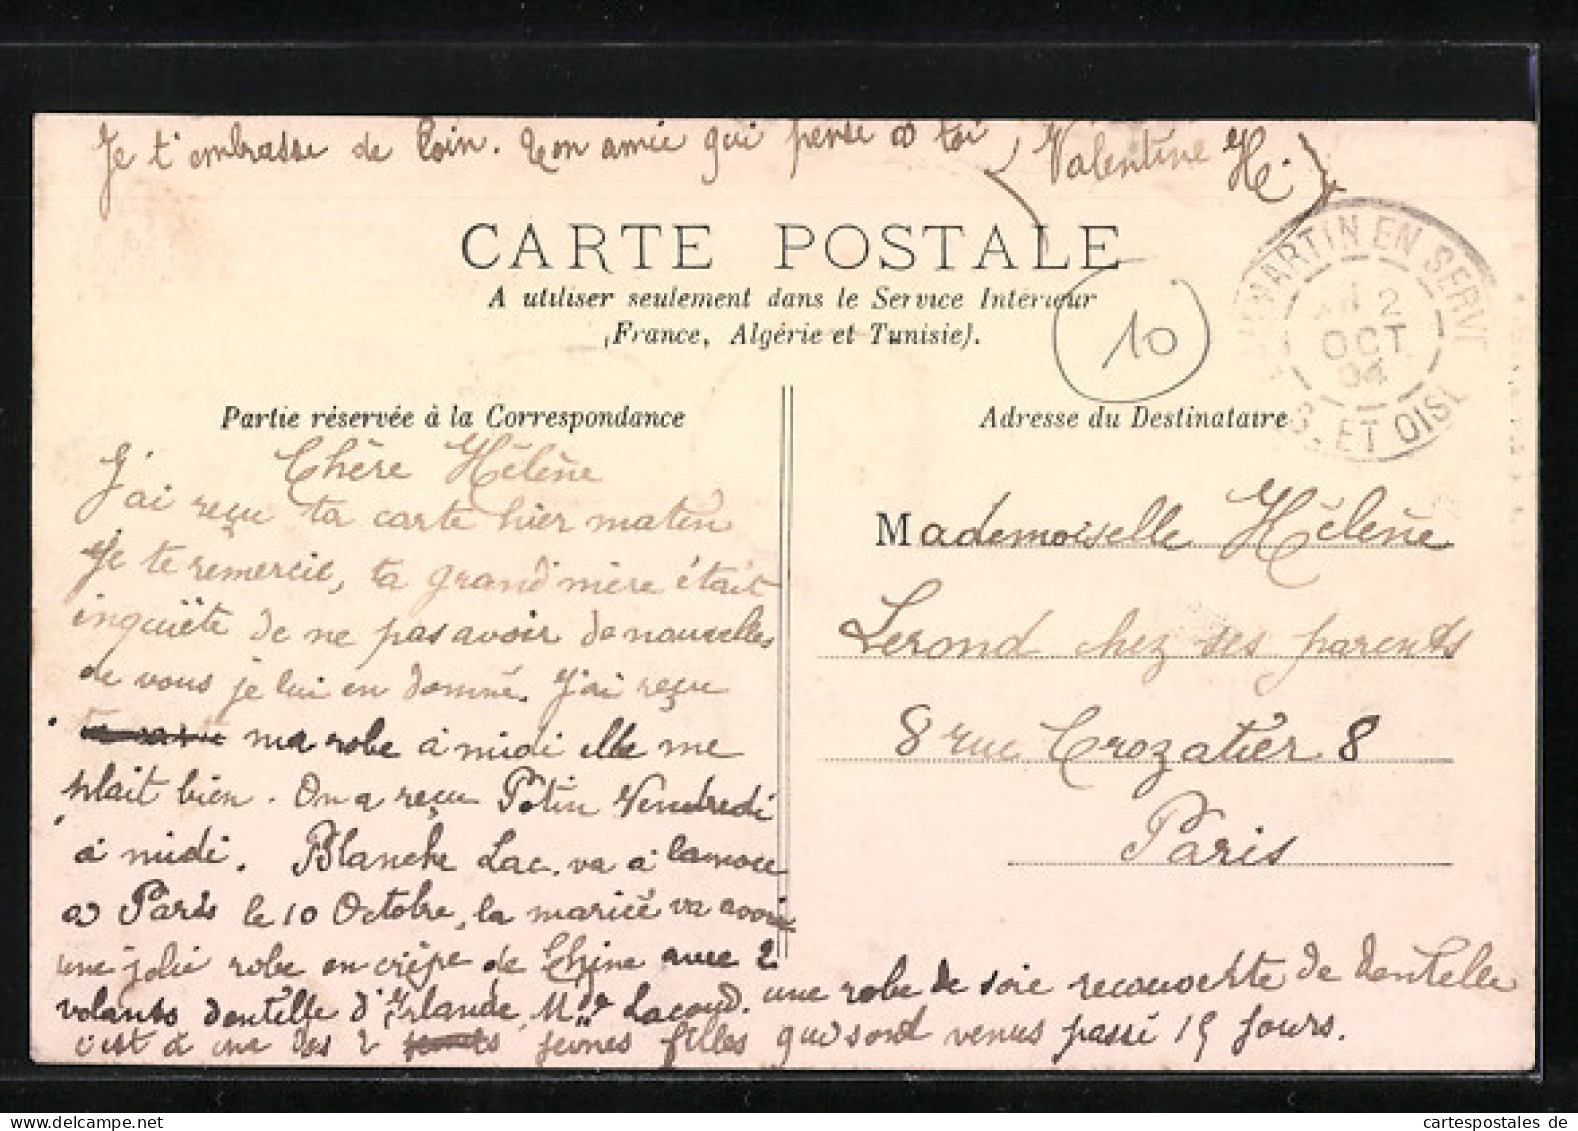 Je t'embrasse de loin. Ton amie qui pense à toi (Valentine H.)
CARTE POSTALE
A utiliser seulement dans le Service Intérieur
(France, Algérie et Tunisie).
10
MARTIN EN SERVE
2
OCT
04
S. ET OISE
Partie réservée à la Correspondance
Chère Hélène
J'ai reçu ta carte hier matin
Je te remercie, ta grand'mère était
inquiète de ne pas avoir de nouvelles
de vous je lui en donné. J'ai reçu
ma robe à midi elle me
plait bien. On a reçu Potin Vendredi
à midi. Blanche Lac. va à la noce
à Paris le 10 Octobre, la mariée va avoir
une jolie robe en crêpe de Chine avec 2
volants dentelle d'Irlande, Mde Lacoud. une robe de soie recouverte de dentelle
c'est à une des 2 jeunes filles qui sont venus passé 15 jours.
Adresse du Destinataire
Mademoiselle Hélène
Lerond chez ses parents
8 rue Crozatier 8
Paris
cartespostales de